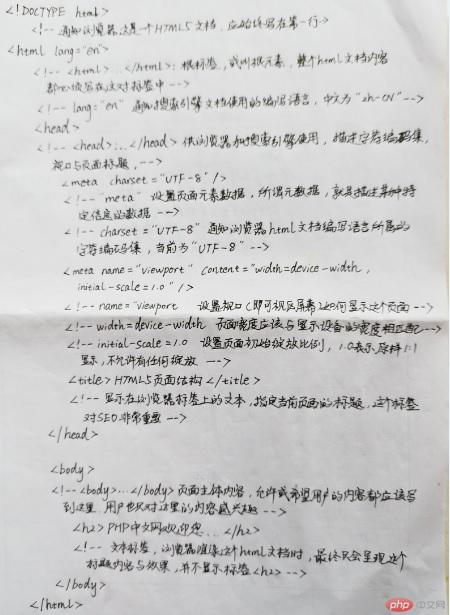 <!DOCTYPE html>
<!-- 通知浏览器这是个HTML5文档，应始终写在第一行->
<html lang="en">
<!-- <html>...</html>: 根标签，或叫根元素，整个html文档内容
都必须写在这对标签中 -->
<!-- lang="en" 通知搜索引擎文档使用的编写语言，中文为"zh-CN"-->
<head>
<!-- <head>...</head> 供浏览器和搜索引擎使用，描述字符编码集，
视口与页面标题，-->
<meta charset="UTF-8"/>
<!-- "meta" 设置页面元素数据，所谓元数据，就是描述某种特
定信息的数据 -->
<!-- charset="UTF-8" 通知浏览器html文档编写语言所属的
字符编码集，当前为"UTF-8" -->
<meta name="viewport" content="width=device-width,
initial-scale=1.0" />
<!-- name="viewport 设置视口(即可视区屏幕)如何显示这个页面 -->
<!-- width=device-width 页面宽度应该与显示设备的宽度相匹配-->
<!-- initial-scale=1.0 设置页面初始缩放比例，1.0表示原样1:1
显示，不允许有任何缩放 -->
<title>HTML5页面结构</title>
<!-- 显示在浏览器标签上的文本，指定当前页面的标题，这个标签
对SEO非常重要 -->
</head>
<body>
<!-- <body>...</body>页面主体内容，允许或希望用户的内容都应该写
到这里，用户也只对这里的内容感兴趣-->
<h2>PHP中文网欢迎您...</h2>
<!-- 文本标签，浏览器渲染这个html文档时，最终只会呈现这个
标题内容与效果，并不显示标签<h2> -->
</body>
</html>
php 中文网